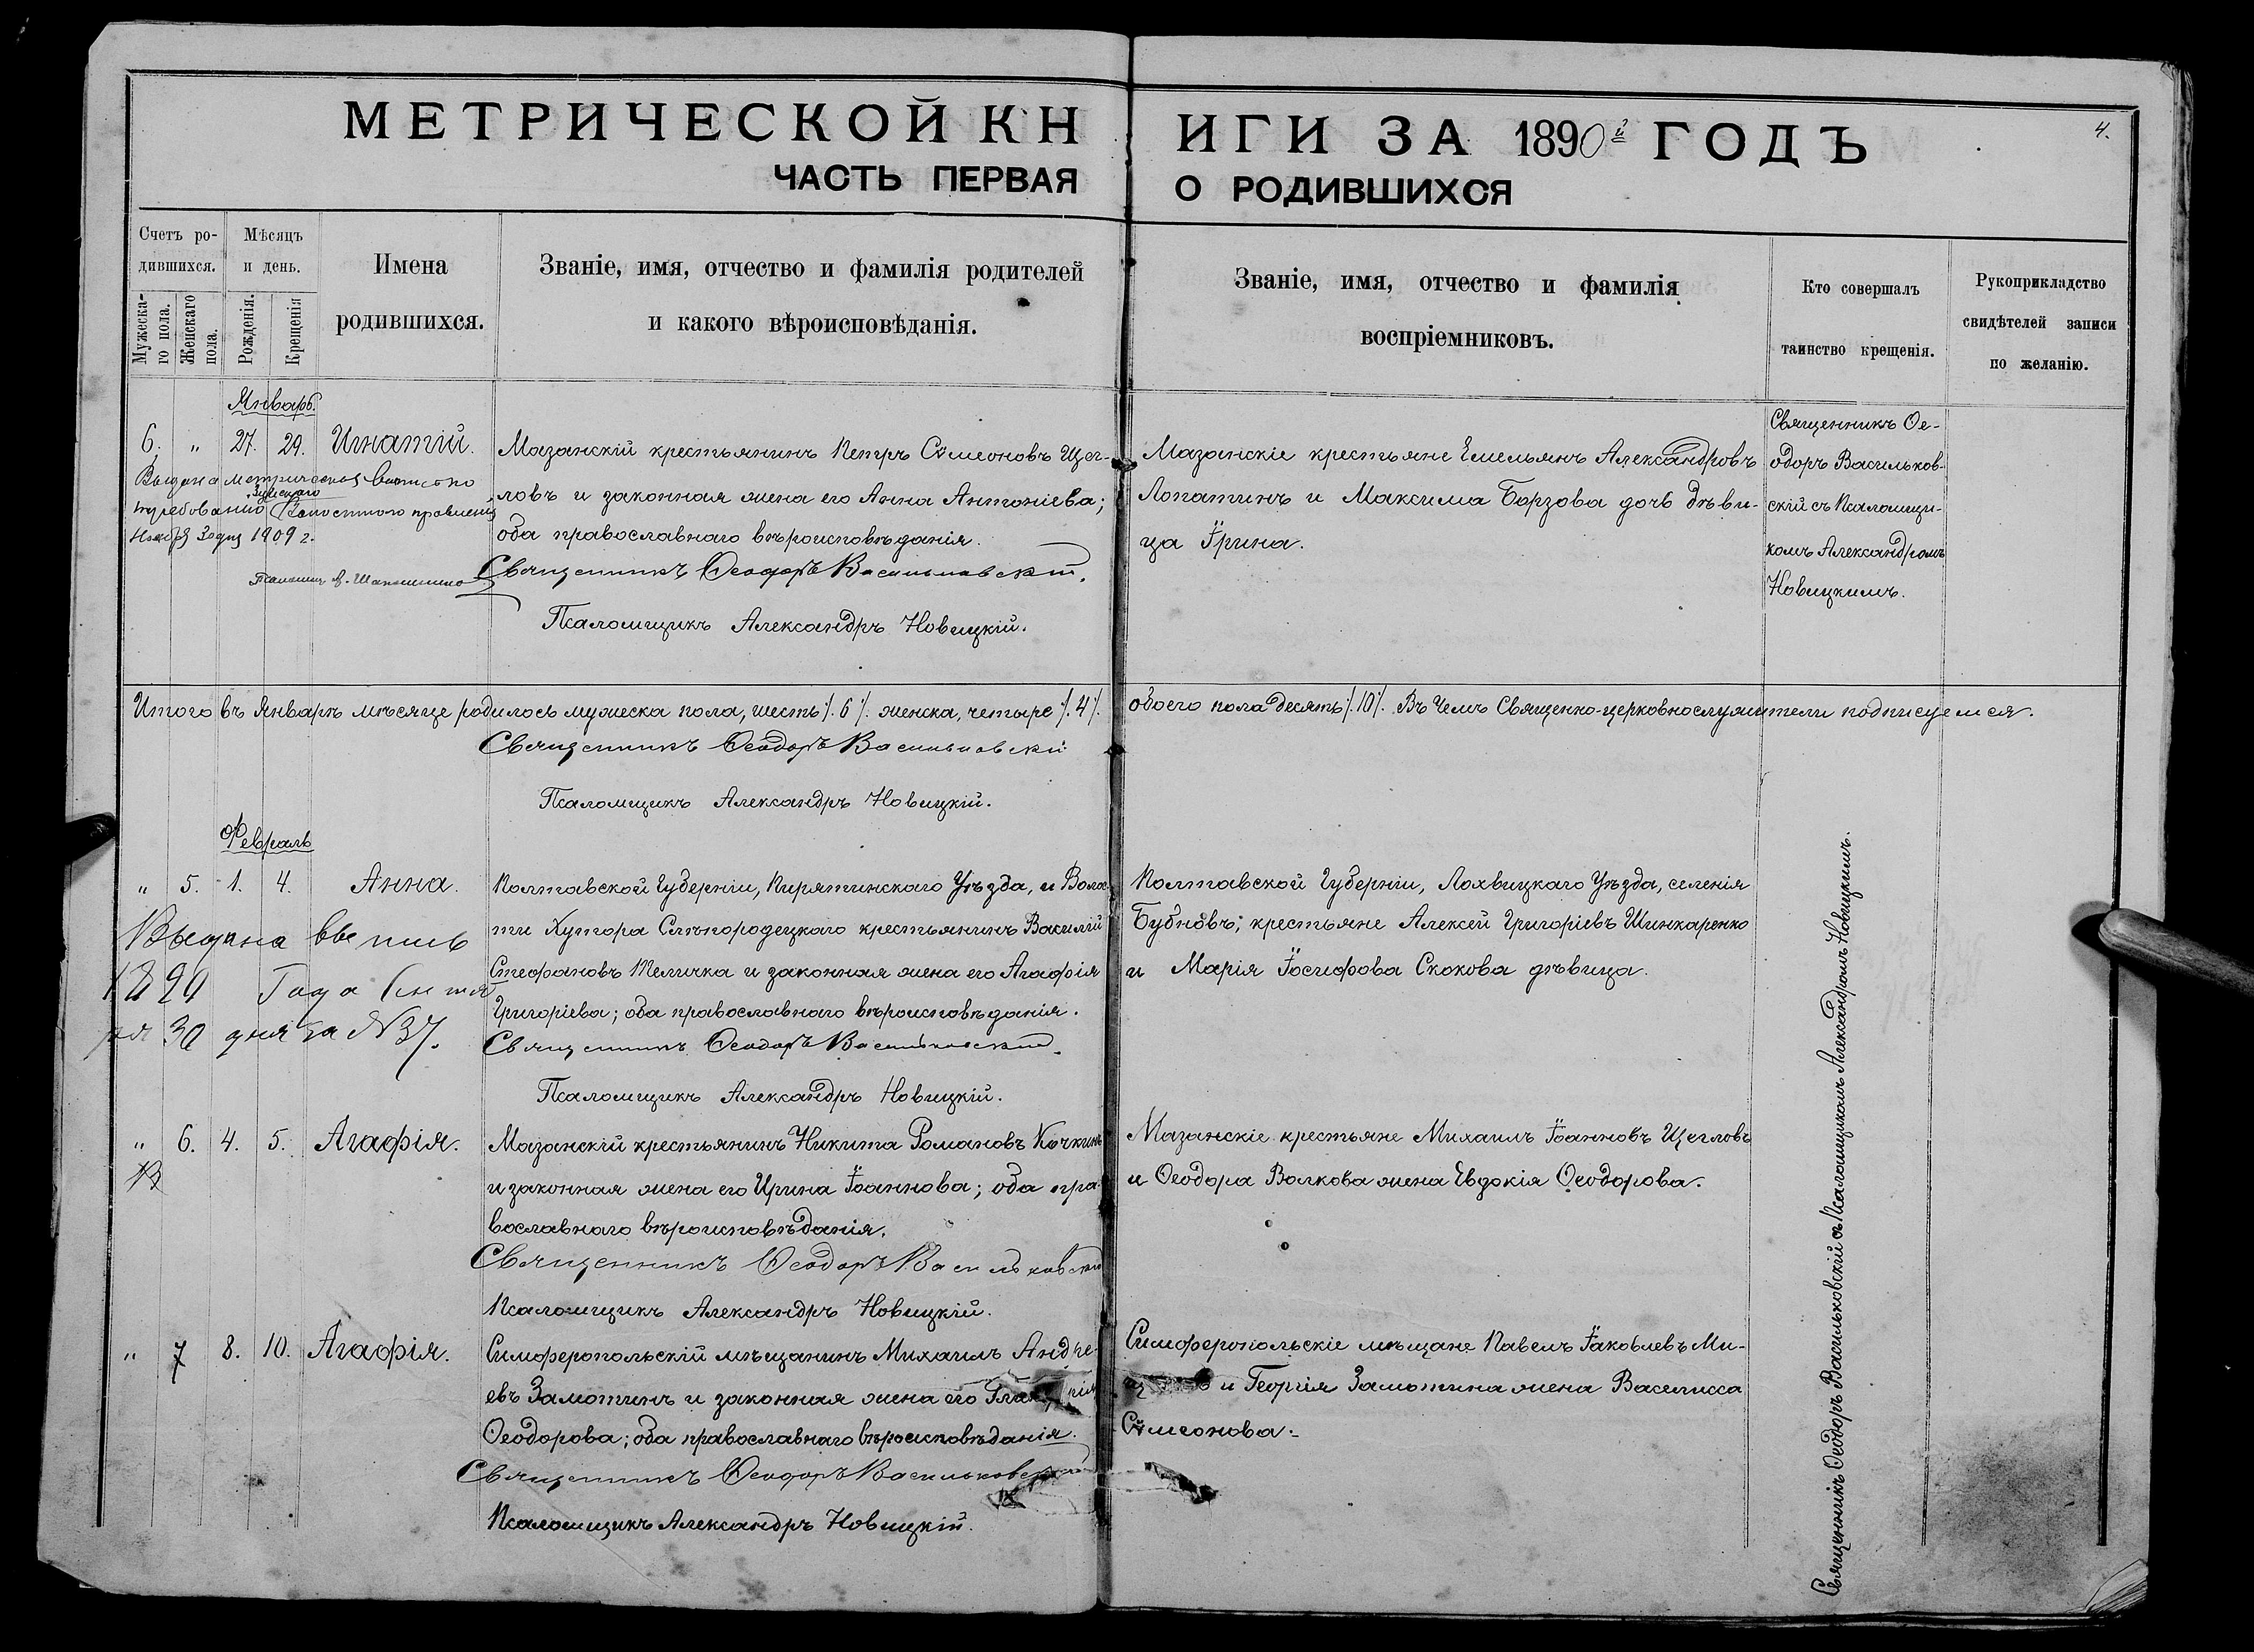 МЕТРИЧЕСКОЙ КНИГИ ЗА 1890й ГОДЪ
4.
ЧАСТЬ ПЕРВАЯ О РОДИВШИХСЯ
Счетъ ро-
дившихся.
Мужеска-
го пола.
Женскаго
пола.
Мѣсяцъ
и день.
Рожденія.
Крещенія
Имена
родившихся.
Званіе, имя, отчество и фамилія родителей
и какого вѣроисповѣданія.
Званіе, имя, отчество и фамилія
воспріемниковъ.
Кто совершалъ
таинство крещенія.
Рукоприкладство
свидѣтелей записи
по желанію.
Январь.
6. „ 27. 29. Игнатій.
Выдана метрическая выпись по
требованію Волостного правленія
Ноября 3 дня 1909 г.
Мазанскій крестьянинъ Петръ Сѵмеоновъ Щег-
ловъ и законная жена его Анна Антоніева;
оба православнаго вѣроисповѣданія.
Священникъ Ѳеодоръ Васильковскій.
Псаломщикъ Александръ Новицкій.
Мазанскіе крестьяне Емельянъ Александровъ
Лопатинъ и Максима Борзова дочь дѣви-
ца Ірина.
Священникъ Ѳе-
одоръ Васильков-
скій съ Псаломщи-
комъ Александромъ
Новицкимъ.
Итого въ Январѣ мѣсяце родилось мужеска пола, шесть /. 6 /. женска, четыре /. 4 /. обоего пола десять /. 10 /. Въ чемъ Священно-церковнослужители подписуемся.
Священникъ Ѳеодоръ Васильковскій
Псаломщикъ Александръ Новицкій.
Февраль
„ 5. 1. 4. Анна.
Выдана выпись
1899 Года Сентя
ря 30 дня за № 37.
Полтавской Губерніи, Пирятинскаго Уѣзда, и Волос-
ти Хутора Слѣпородецкаго крестьянинъ Василій
Стефановъ Теличка и законная жена его Агафія
Григоріева; оба православнаго вѣроисповѣданія.
Священникъ Ѳеодоръ Васильковскій.
Псаломщикъ Александръ Новицкій.
Полтавской Губерніи, Лохвицкаго Уѣзда, селенія
Бубновъ; крестьяне Алексей Григоріевъ Шинкаренко
и Марія Іосифова Скокова дѣвица.
„ 6. 4. 5. Агафія.
В
Мазанскій крестьянинъ Никита Романовъ Кочкинъ
и законная жена его Ирина Іоаннова; оба пра-
вославнаго вѣроисповѣданія.
Священникъ Ѳеодоръ Васильковскій
Псаломщикъ Александръ Новицкій.
Мазанскіе крестьяне Михаилъ Іоанновъ Щегловъ
и Ѳеодора Волкова жена Евдокія Ѳеодорова.
„ 7 8. 10. Агафія.
Симферопольскій мѣщанинъ Михаилъ Андре-
евъ Замотинъ и законная жена его
Ѳеодорова; оба православнаго вѣроисповѣданія.
Священникъ Ѳеодоръ Васильковскій
Псаломщикъ Александръ Новицкій.
Симферопольскіе мѣщане Павелъ Іаковлевъ Ми-
и Георгія Замотина жена Василисса
Сѵмеонова.
Священникъ Ѳеодоръ Васильковскій съ Псаломщикомъ Александромъ Новицкимъ.